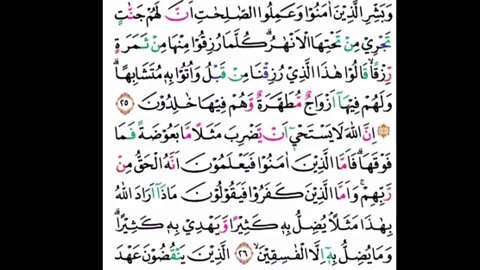 وَبَشِّرِ الَّذِيْنَ اٰمَنُوْا وَعَمِلُوا الصّٰلِحٰتِ اَنَّ لَهُمْ جَنّٰتٍ
تَجْرِيْ مِنْ تَحْتِهَا الْاَنْهٰرُۗ كُلَّمَا رُزِقُوْا مِنْهَا مِنْ ثَمَرَةٍ
رِّزْقًاۙ قَالُوْا هٰذَا الَّذِيْ رُزِقْنَا مِنْ قَبْلُ وَاُتُوْا بِهٖ مُتَشَابِهًاۗ
وَلَهُمْ فِيْهَآ اَزْوَاجٌ مُّطَهَّرَةٌ وَّهُمْ فِيْهَا خٰلِدُوْنَ ٢٥
۞ اِنَّ اللّٰهَ لَا يَسْتَحْيٖٓ اَنْ يَّضْرِبَ مَثَلًا مَّا بَعُوْضَةً فَمَا
فَوْقَهَاۗ فَاَمَّا الَّذِيْنَ اٰمَنُوْا فَيَعْلَمُوْنَ اَنَّهُ الْحَقُّ مِنْ
رَّبِّهِمْۚ وَاَمَّا الَّذِيْنَ كَفَرُوْا فَيَقُوْلُوْنَ مَاذَآ اَرَادَ اللّٰهُ
بِهٰذَا مَثَلًاۘ يُضِلُّ بِهٖ كَثِيْرًا وَّيَهْدِيْ بِهٖ كَثِيْرًاۗ
وَمَا يُضِلُّ بِهٖٓ اِلَّا الْفٰسِقِيْنَۙ ٢٦ الَّذِيْنَ يَنْقُضُوْنَ عَهْدَ